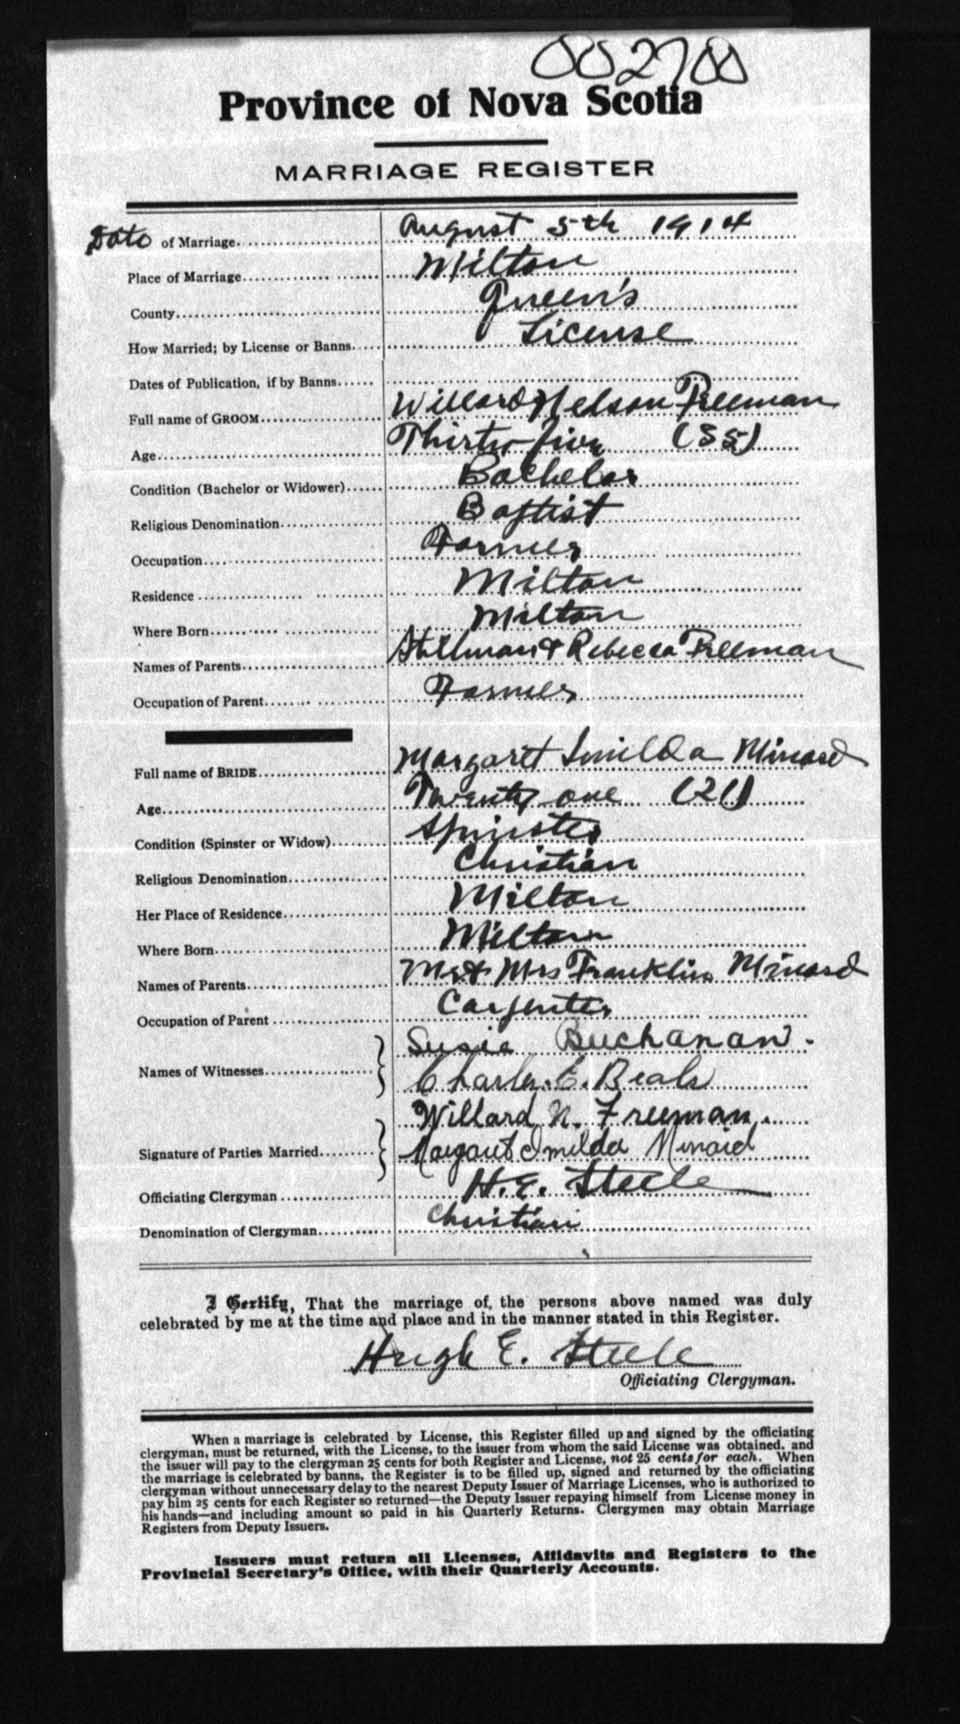 002700
Province of Nova Scotia
MARRIAGE REGISTER
Date of Marriage August 5th 1914
Place of Marriage Milton
County Queen's
How Married; by License or Banns License
Dates of Publication, if by Banns
Full name of GROOM Willard Nelson Freeman
Age Thirty five (35)
Condition (Bachelor or Widower) Bachelor
Religious Denomination Baptist
Occupation Farmer
Residence Milton
Where Born Milton
Names of Parents Stillman & Rebecca Freeman
Occupation of Parent Farmer
Full name of BRIDE Margaret Imilda Minard
Age Twenty one (21)
Condition (Spinster or Widow) Spinster
Religious Denomination Christian
Her Place of Residence Milton
Where Born Milton
Names of Parents Mr & Mrs Franklin Minard
Occupation of Parent Carpenter
Names of Witnesses Susie Buchanan.
Charles. E. Beals
Willard N. Freeman.
Signature of Parties Married Margaret Imilda Minard
Officiating Clergyman H. E. Steele
Denomination of Clergyman Christian
I Certify, That the marriage of, the persons above named was duly
celebrated by me at the time and place and in the manner stated in this Register.
Hugh E. Steele
Officiating Clergyman.
When a marriage is celebrated by License, this Register filled up and signed by the officiating
clergyman, must be returned, with the License, to the issuer from whom the said License was obtained, and
the issuer will pay to the clergyman 25 cents for both Register and License, not 25 cents for each. When
the marriage is celebrated by banns, the Register is to be filled up, signed and returned by the officiating
clergyman without unnecessary delay to the nearest Deputy Issuer of Marriage Licenses, who is authorized to
pay him 25 cents for each Register so returned—the Deputy Issuer repaying himself from License money in
his hands—and including amount so paid in his Quarterly Returns. Clergymen may obtain Marriage
Registers from Deputy Issuers.
Issuers must return all Licenses, Affidavits and Registers to the
Provincial Secretary's Office, with their Quarterly Accounts.